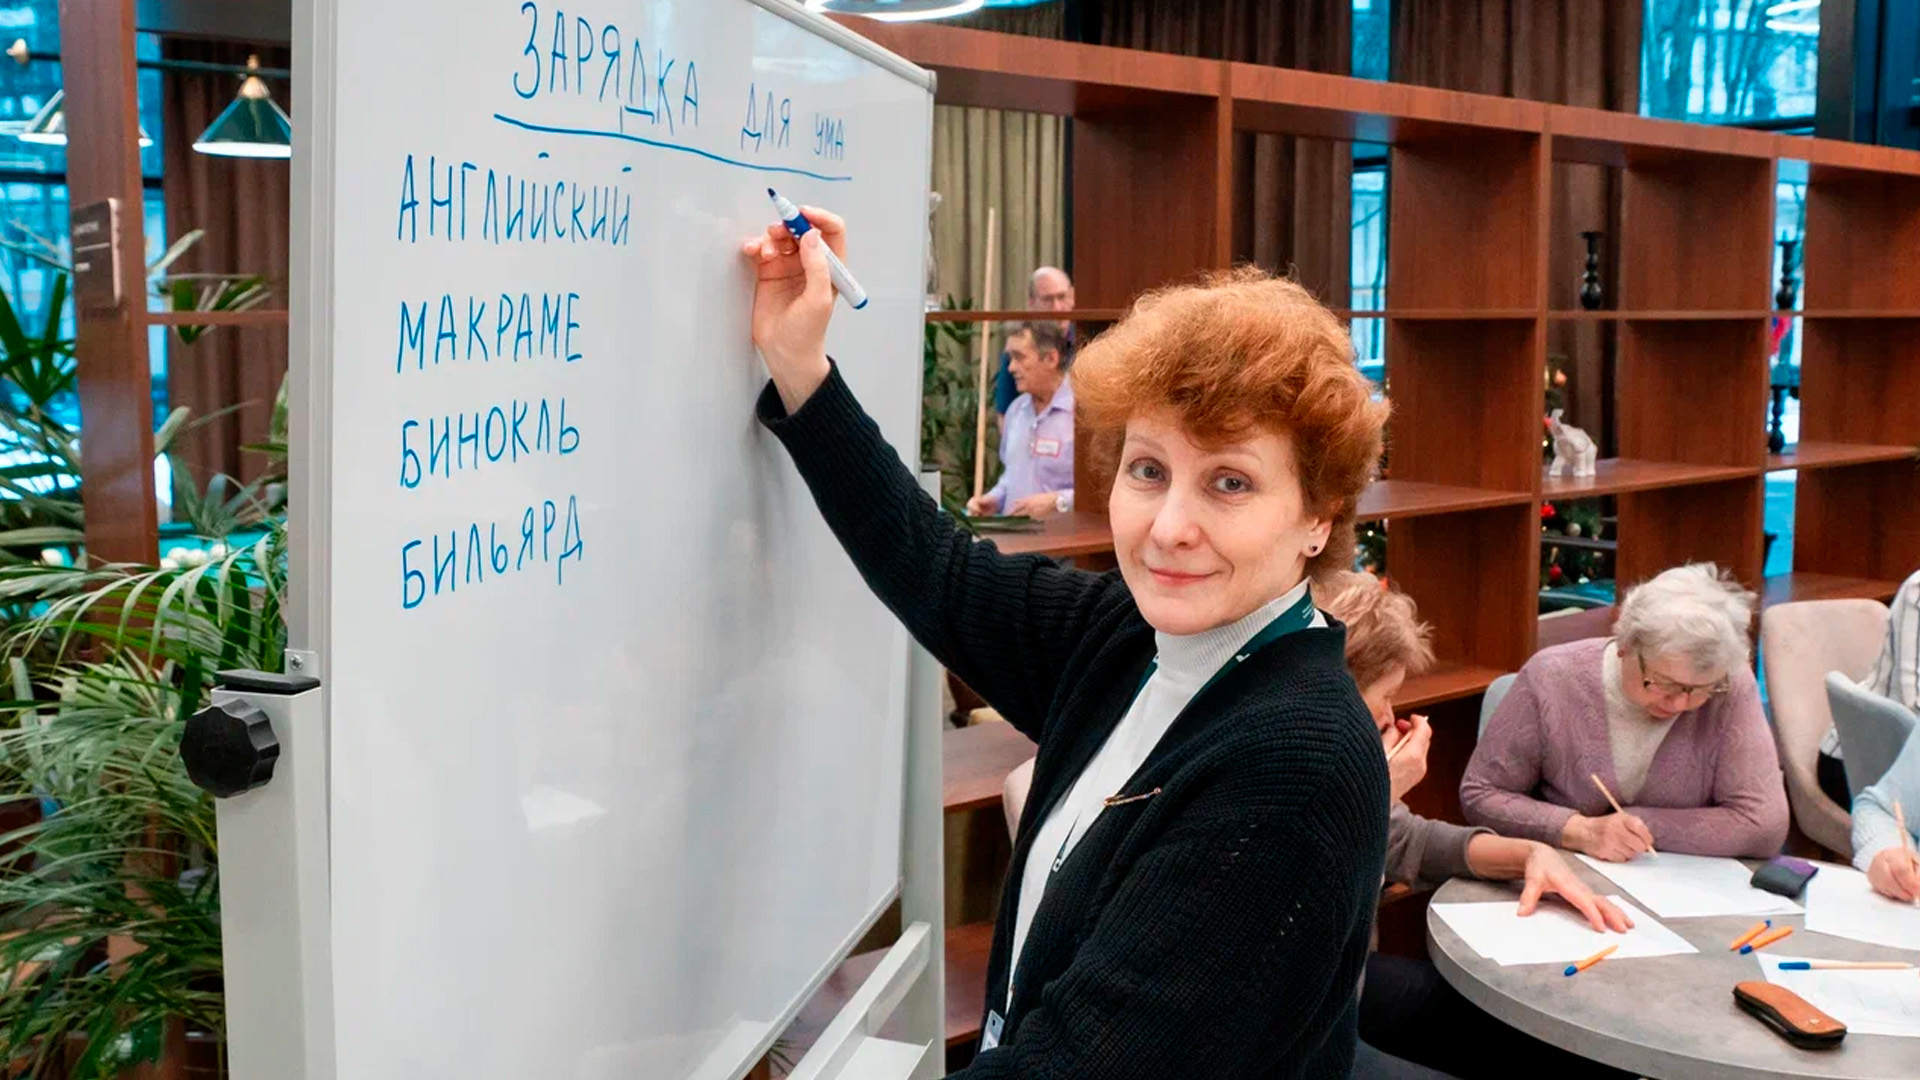 ЗАРЯДКА ДЛЯ УМА
АНГЛИЙСКИЙ
МАКРАМЕ
БИНОКЛЬ
БИЛЬЯРД